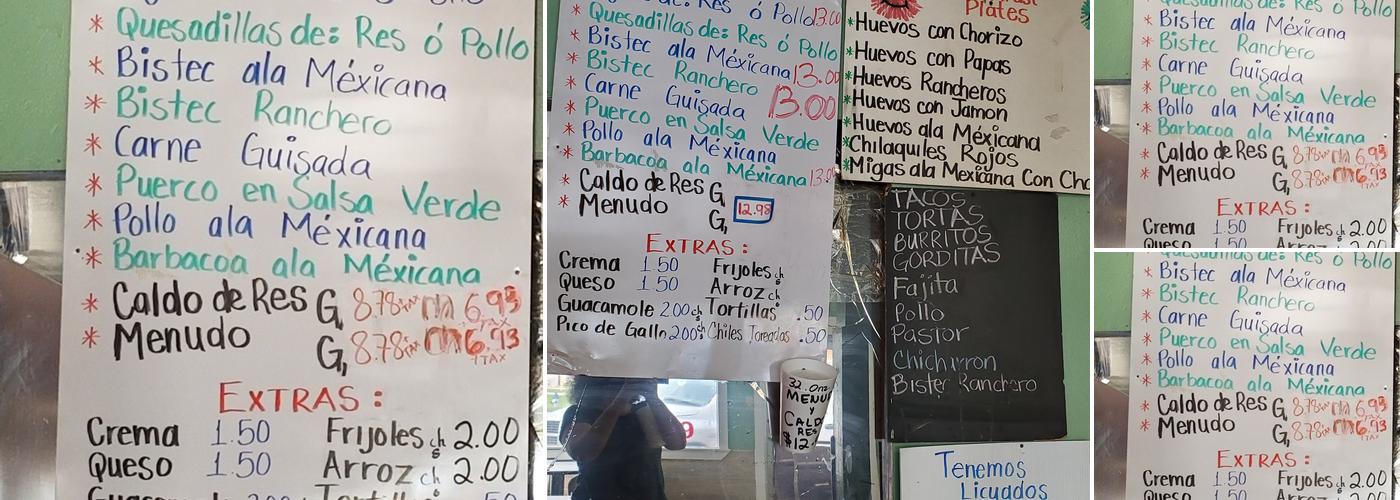 * Quesadillas de: Res ó Pollo
* Bistec ala Méxicana
* Bistec Ranchero
* Carne Guisada
* Puerco en Salsa Verde
* Pollo ala Méxicana
* Barbacoa ala Méxicana
* Caldo de Res G, 8.78 m 6.93
* Menudo G, 8.78 m 6.93
+TAX
EXTRAS:
Crema 1.50 Frijoles ch 2.00
Queso 1.50 Arroz ch 2.00
Res ó Pollo 13.00
* Quesadillas de: Res ó Pollo
* Bistec ala Méxicana 13.00
* Bistec Ranchero
* Carne Guisada 13.00
* Puerco en Salsa Verde
* Pollo ala Méxicana
* Barbacoa ala Méxicana 13.0
* Caldo de Res G,
* Menudo G, 12.98
EXTRAS:
Crema 1.50 Frijoles ch
Queso 1.50 Arroz ch
Guacamole 2.00 ch Tortillas .50
Pico de Gallo 2.00 ch Chiles Toreados .50
32. Onz
MENU
Y
CALD
RES
$12.
Plates
*Huevos con Chorizo
*Huevos con Papas
*Huevos Rancheros
*Huevos con Jamon
*Huevos ala Méxicana
*Chilaquiles Rojos
*Migas ala Mexicana Con Cho
TACOS
TORTAS
BURRITOS
GORDITAS
Fajita
Pollo
Pastor
Chicharron
Bistec Ranchero
Tenemos
Licuados
* Bistec ala Méxicana
* Bistec Ranchero
* Carne Guisada
* Puerco en Salsa Verde
* Pollo ala Méxicana
* Barbacoa ala Méxicana
* Caldo de Res G, 8.78 m 6.93
* Menudo G, 8.78 m 6.93
+TAX
EXTRAS:
Crema 1.50 Frijoles ch 2.00
Queso 1.50
* Bistec ala Méxicana
* Bistec Ranchero
* Carne Guisada
* Puerco en Salsa Verde
* Pollo ala Méxicana
* Barbacoa ala Méxicana
* Caldo de Res G, 8.78 m 6.93
* Menudo G, 8.78 m 6.93
+TAX
EXTRAS:
Crema 1.50 Frijoles ch 2.00
Queso 1.50 Arroz ch 2.00